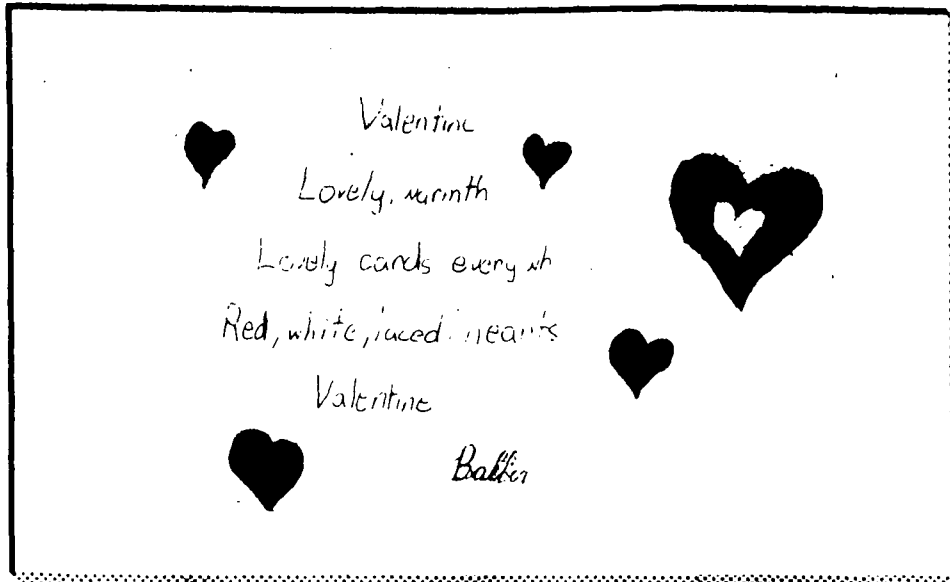 Valentine
Lovely, warmth
Lovely cards every wh
Red, white, laced hearts
Valentine